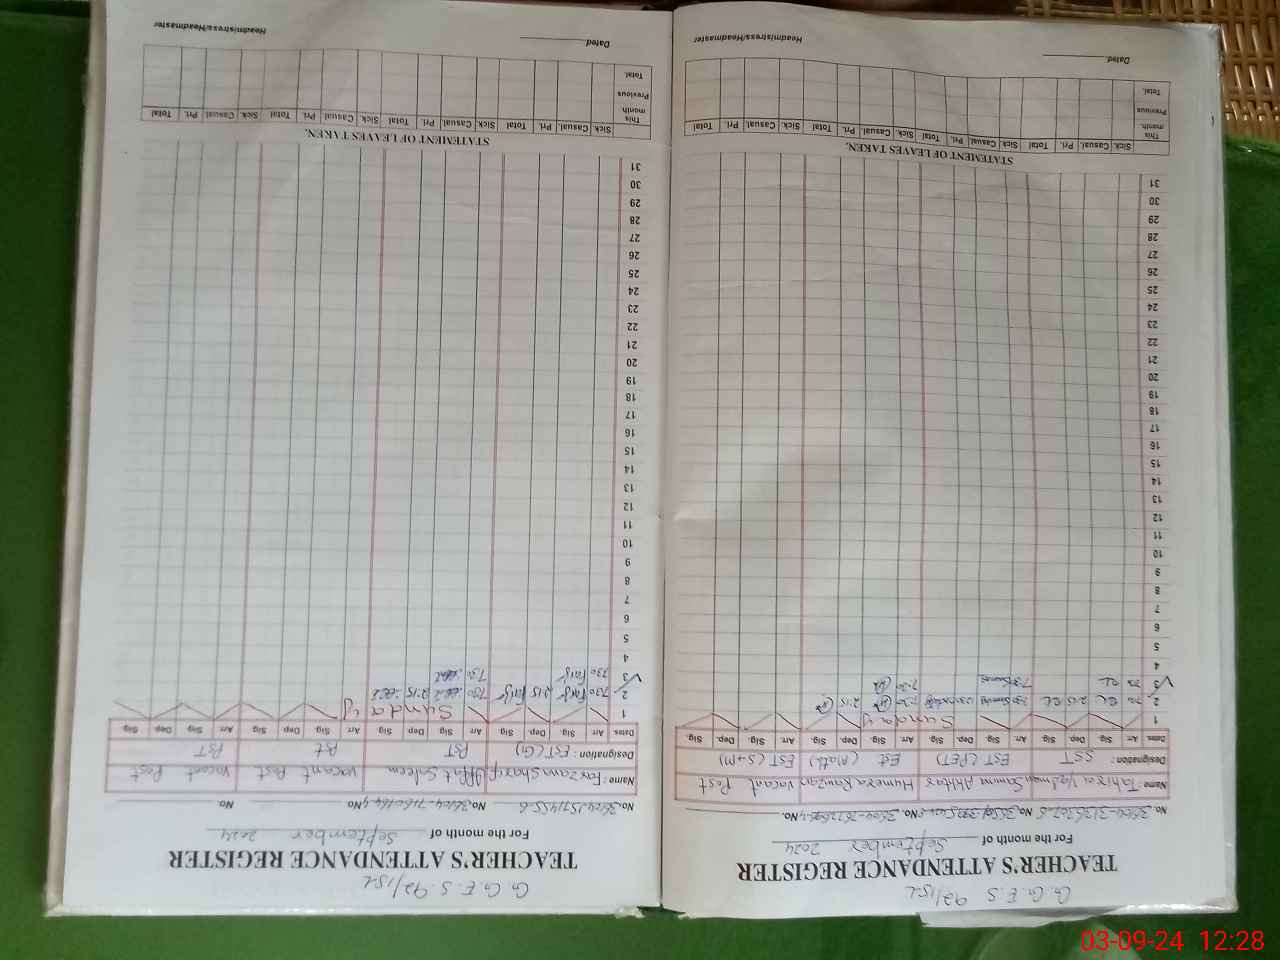 G. G. E. S 92/15-L
TEACHER'S ATTENDANCE REGISTER
For the month of September 2024
No. No. No. No.
Name: Tahira Samina Akhtar Humera Ramzan Vacant Post
Designation: SST EST (PET) Est (Math) EST (S+M)
Dates. Arr. Dep. Sig. Arr. Sig. Dep. Sig. Arr. Sig. Dep. Sig. Arr. Sig. Dep. Sig.
1 Sunday
2 2:15 7:30 2:15
3 7:30
4
5
6
7
8
9
10
11
12
13
14
15
16
17
18
19
20
21
22
23
24
25
26
27
28
29
30
31
STATEMENT OF LEAVES TAKEN.
Sick Casual. Pri. Total Sick Casual. Pri. Total Sick. Casual. Pri. Total Sick. Casual. Pri. Total
This month
Previous
Total.
Dated
Headmistress/Headmaster
G. G. E. S 92/15-L
TEACHER'S ATTENDANCE REGISTER
For the month of September 2024
No. No. 36104-7160164-4 No. No.
Name: Farzana Sharif Iffat Saleem Vacant Post Vacant Post
Designation: EST (G) PST Pst PST
Dates. Arr. Sig. Dep. Sig. Arr. Sig. Dep. Sig. Arr. Sig. Dep. Sig. Arr. Sig. Dep. Sig.
1 Sunday
2 730 215 730 215
3 730 730
4
5
6
7
8
9
10
11
12
13
14
15
16
17
18
19
20
21
22
23
24
25
26
27
28
29
30
31
STATEMENT OF LEAVES TAKEN.
Sick Casual. Pri. Total Sick. Casual. Pri. Total Sick. Casual. Pri. Total Sick. Casual Pri. Total
This month
Previous
Total.
Dated
Headmistress/Headmaster
03-09-24 12:28